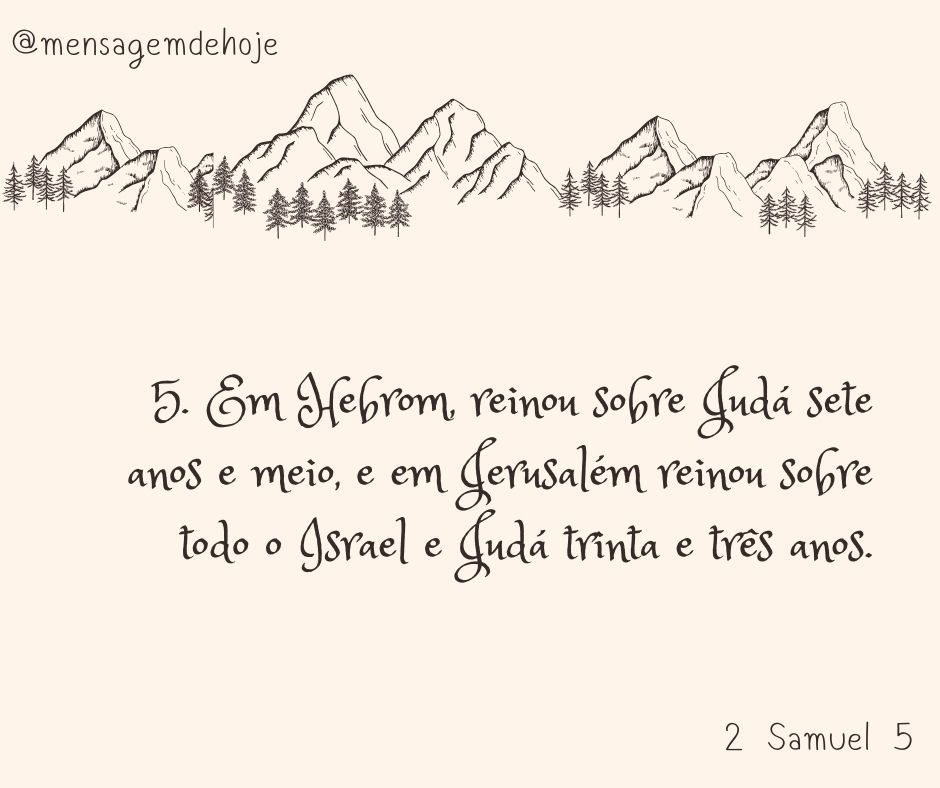 @mensagemdehoje
5. Em Hebrom, reinou sobre Judá sete
anos e meio, e em Jerusalém reinou sobre
todo o Israel e Judá trinta e três anos.
2 Samuel 5